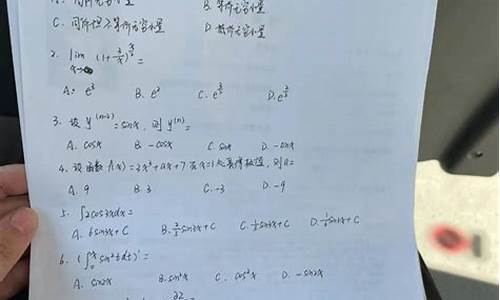 A. 同阶无穷小量 B. 等阶无穷小量
C. 同阶但不等阶无穷小量 D. 无穷小量
2. lim x→∞ (1+ =
A. e³ B. e² C. e D. e
3. 设 y⁽ⁿ⁻²⁾ = sinx, 则 y⁽ⁿ⁾ =
A. cosx B. -cosx C. sinx D. -sinx
4. 设函数 f(x) = 2x³+ax+7 在x=1处取得极值, 则a=
A. 9 B. 3 C. -3 D. -9
5. ∫2cos3xdx =
A. 6sin3x+C B. ⅔sin3x+C C. sin3x+C D. sin3x+C
6. (∫₀ˣ sin²tdt)' =
A. sin2x B. sin²x C. cos²x D. -sin2x